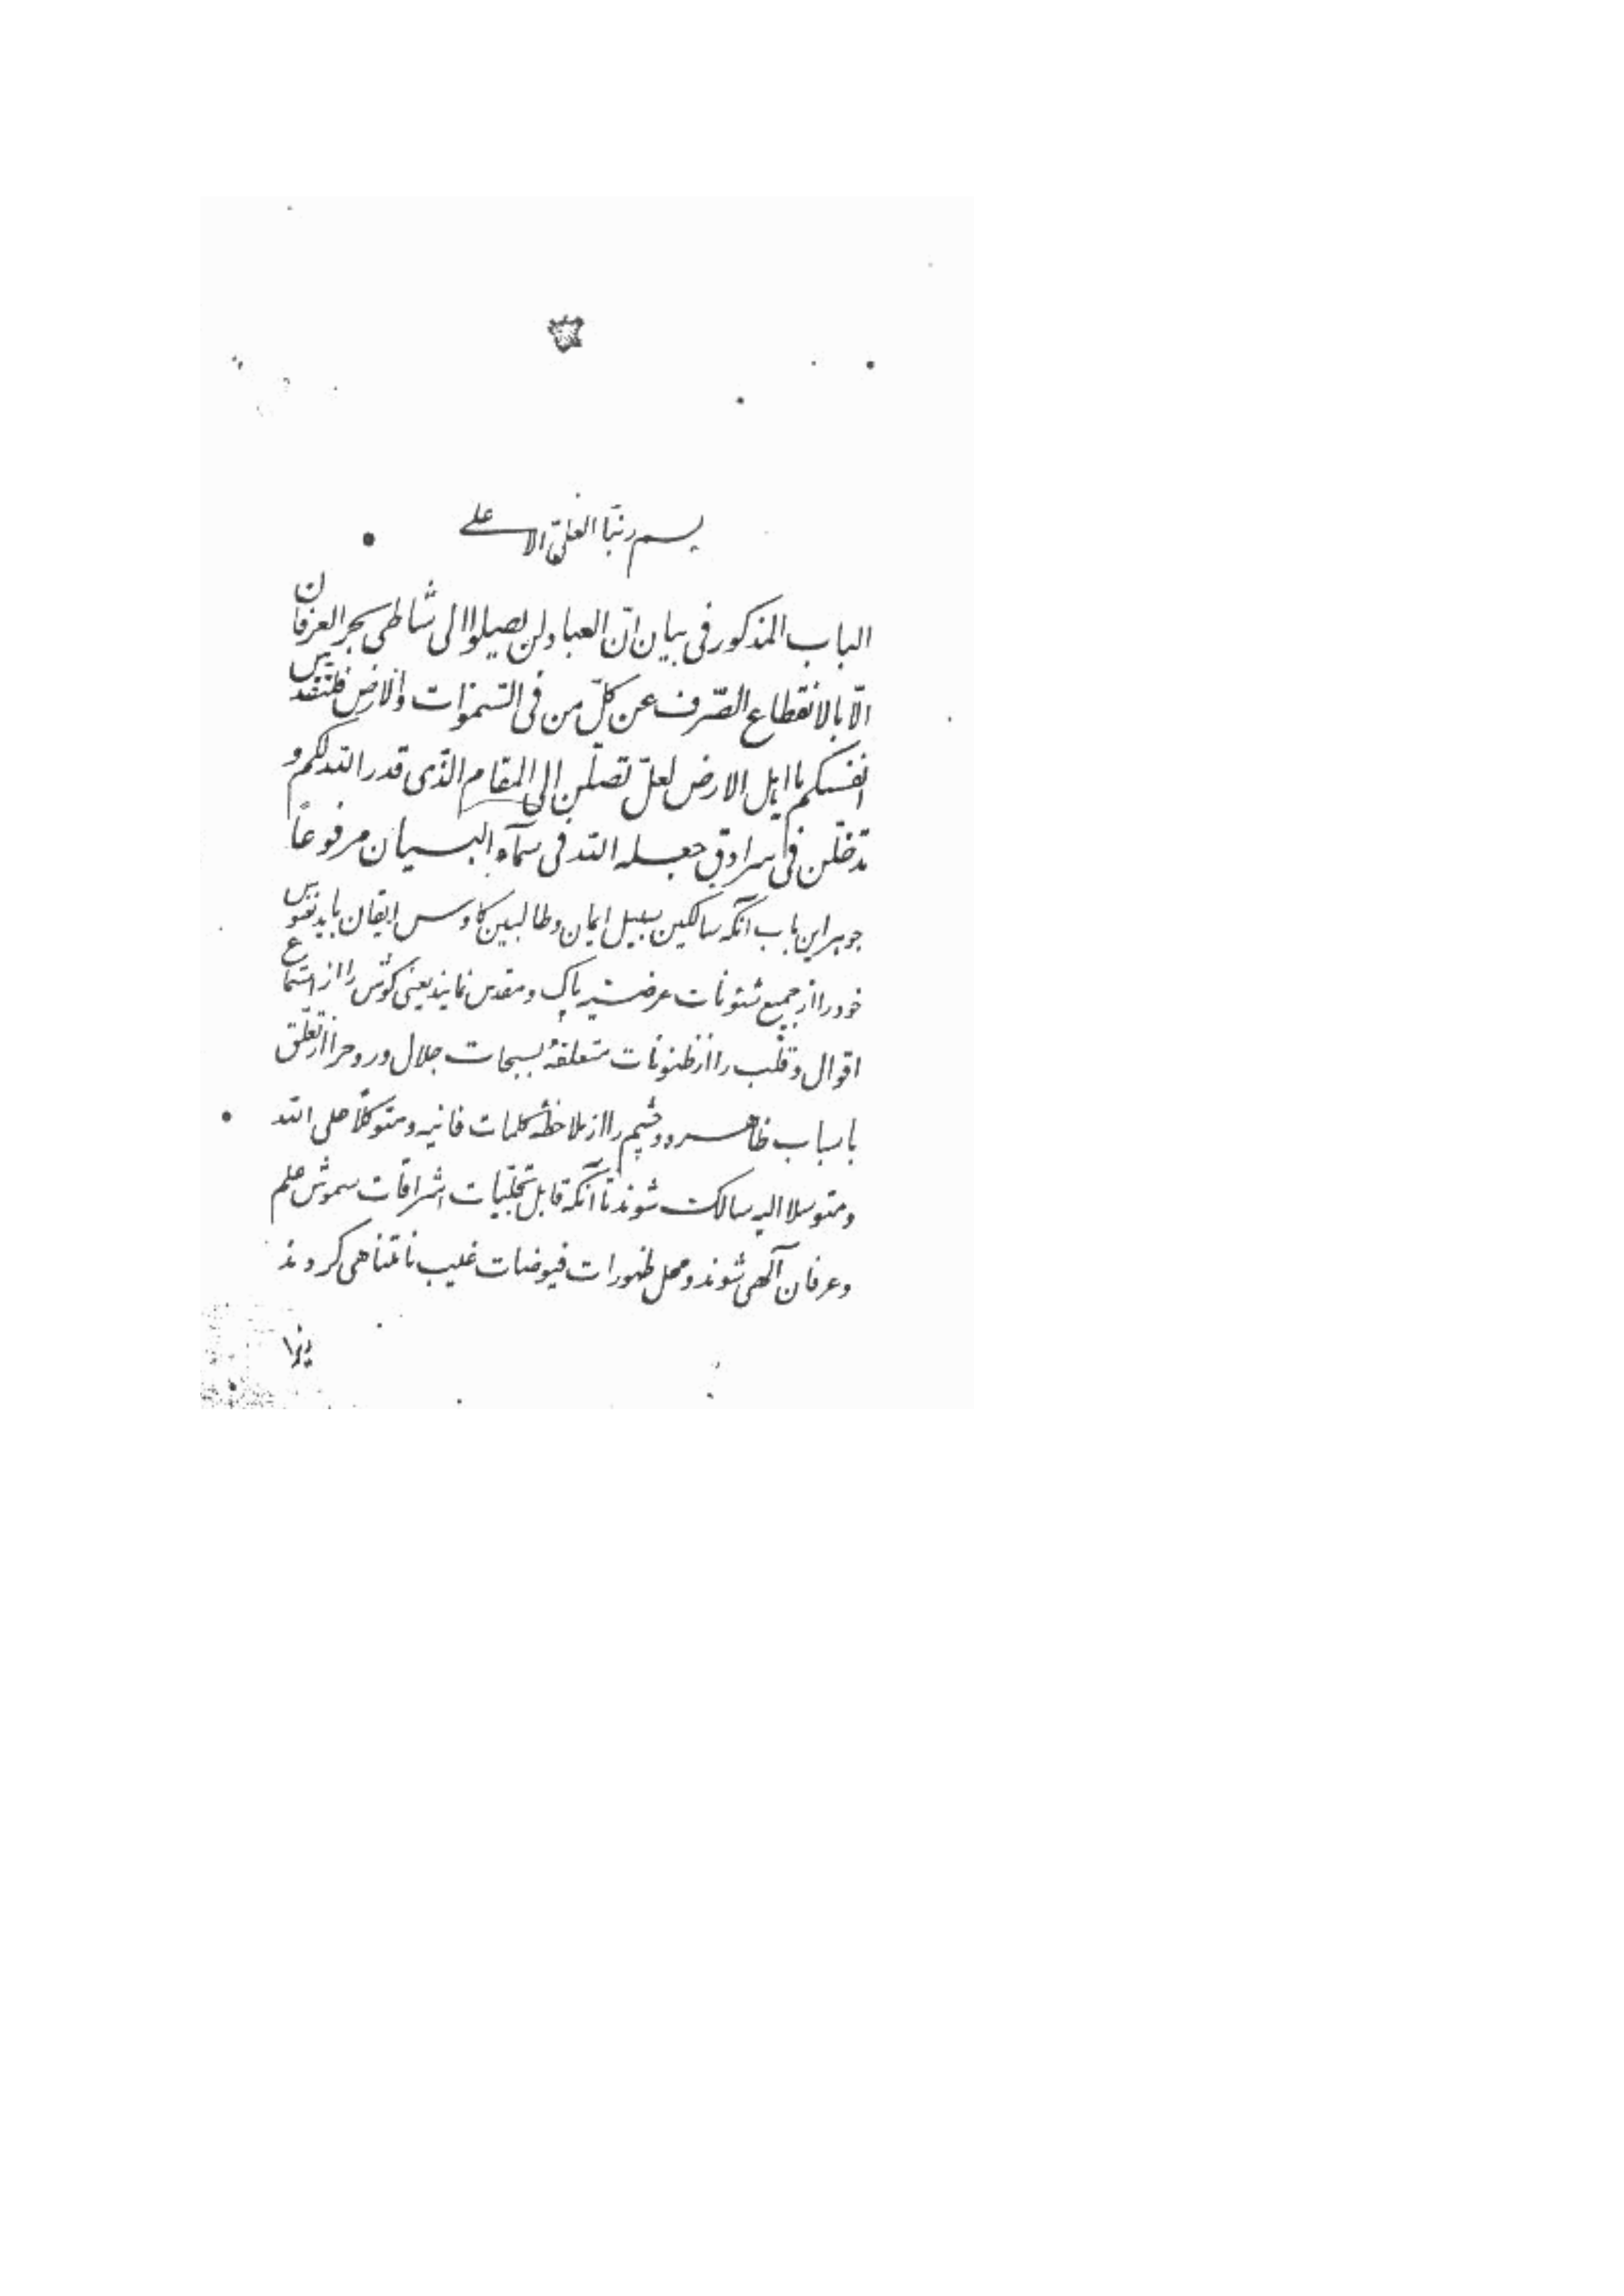 بسم ربنا العلیّ الاعلی
الباب المذکور فی بیان انّ العباد لن یصلوا الی شاطی بحر العرفان
الّا بالانقطاع الصّرف عن کلّ من فی السّموات والارض فلتقدّس
انفسکم یا اهل الارض لعلّ تصلّن الی المقام الذی قدر الله لکم و
تدخلّن فی سرادق جعله الله فی سمآء البیان مرفوعاً
جوهر این باب آنکه سالکین سبیل ایمان و طالبین کاوس ایقان باید نفوس
خود را از جمیع شئونات عرضیه پاک و مقدس نمایند یعنی گوش را از استماع
اقوال و قلب را از ظنونات متعلقه بسبحات جلال و روح را از تعلّق
باسباب ظاهره و چشم را از ملاحظه کلمات فانیه و متوکلاً علی الله
و متوسلا الیه سالک شوند تا آنکه قابل تجلّیات اشراقات شموش علم
و عرفان آلهی شوند و محل ظهورات فیوضات غیب نامتناهی گردند
زیرا